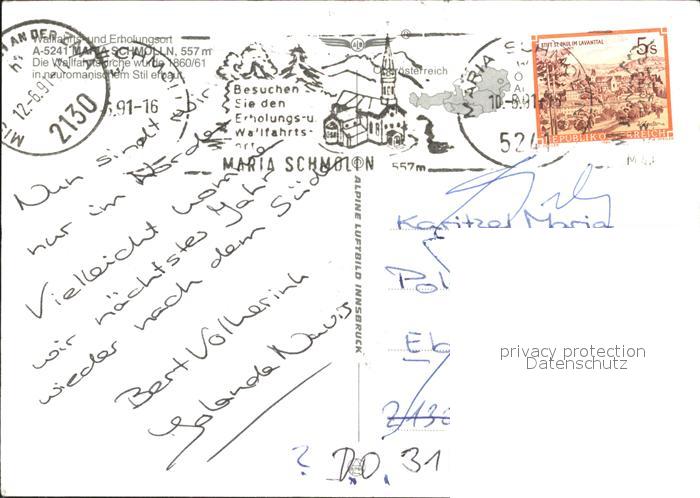 Wallfahrts- und Erholungsort
A-5241 MARIA SCHMOLLN, 557 m
Die Wallfahrtskirche wurde 1860/61
in neuromanischem Stil erbaut
Oberösterreich
12-6.91
2130
.91-16
Besuchen
Sie den
Erholungs-u.
Wallfahrts-
ort
MARIA SCHMOLLN
557m
MARIA SCH
10.-6.91
524
STIFT ST. PAUL IM LAVANTTAL
5 S
REPUBLIK ÖSTERREICH
Nun sind wir
nur im Norden
Vielleicht kommen
wir nächstes Jahr
wieder nach dem Süden
Bert
Yolanda
ALPINE LUFTBILD INNSBRUCK
Karitzer Maria
Pol
Eb
2130
? D.O. 31
privacy protection
Datenschutz